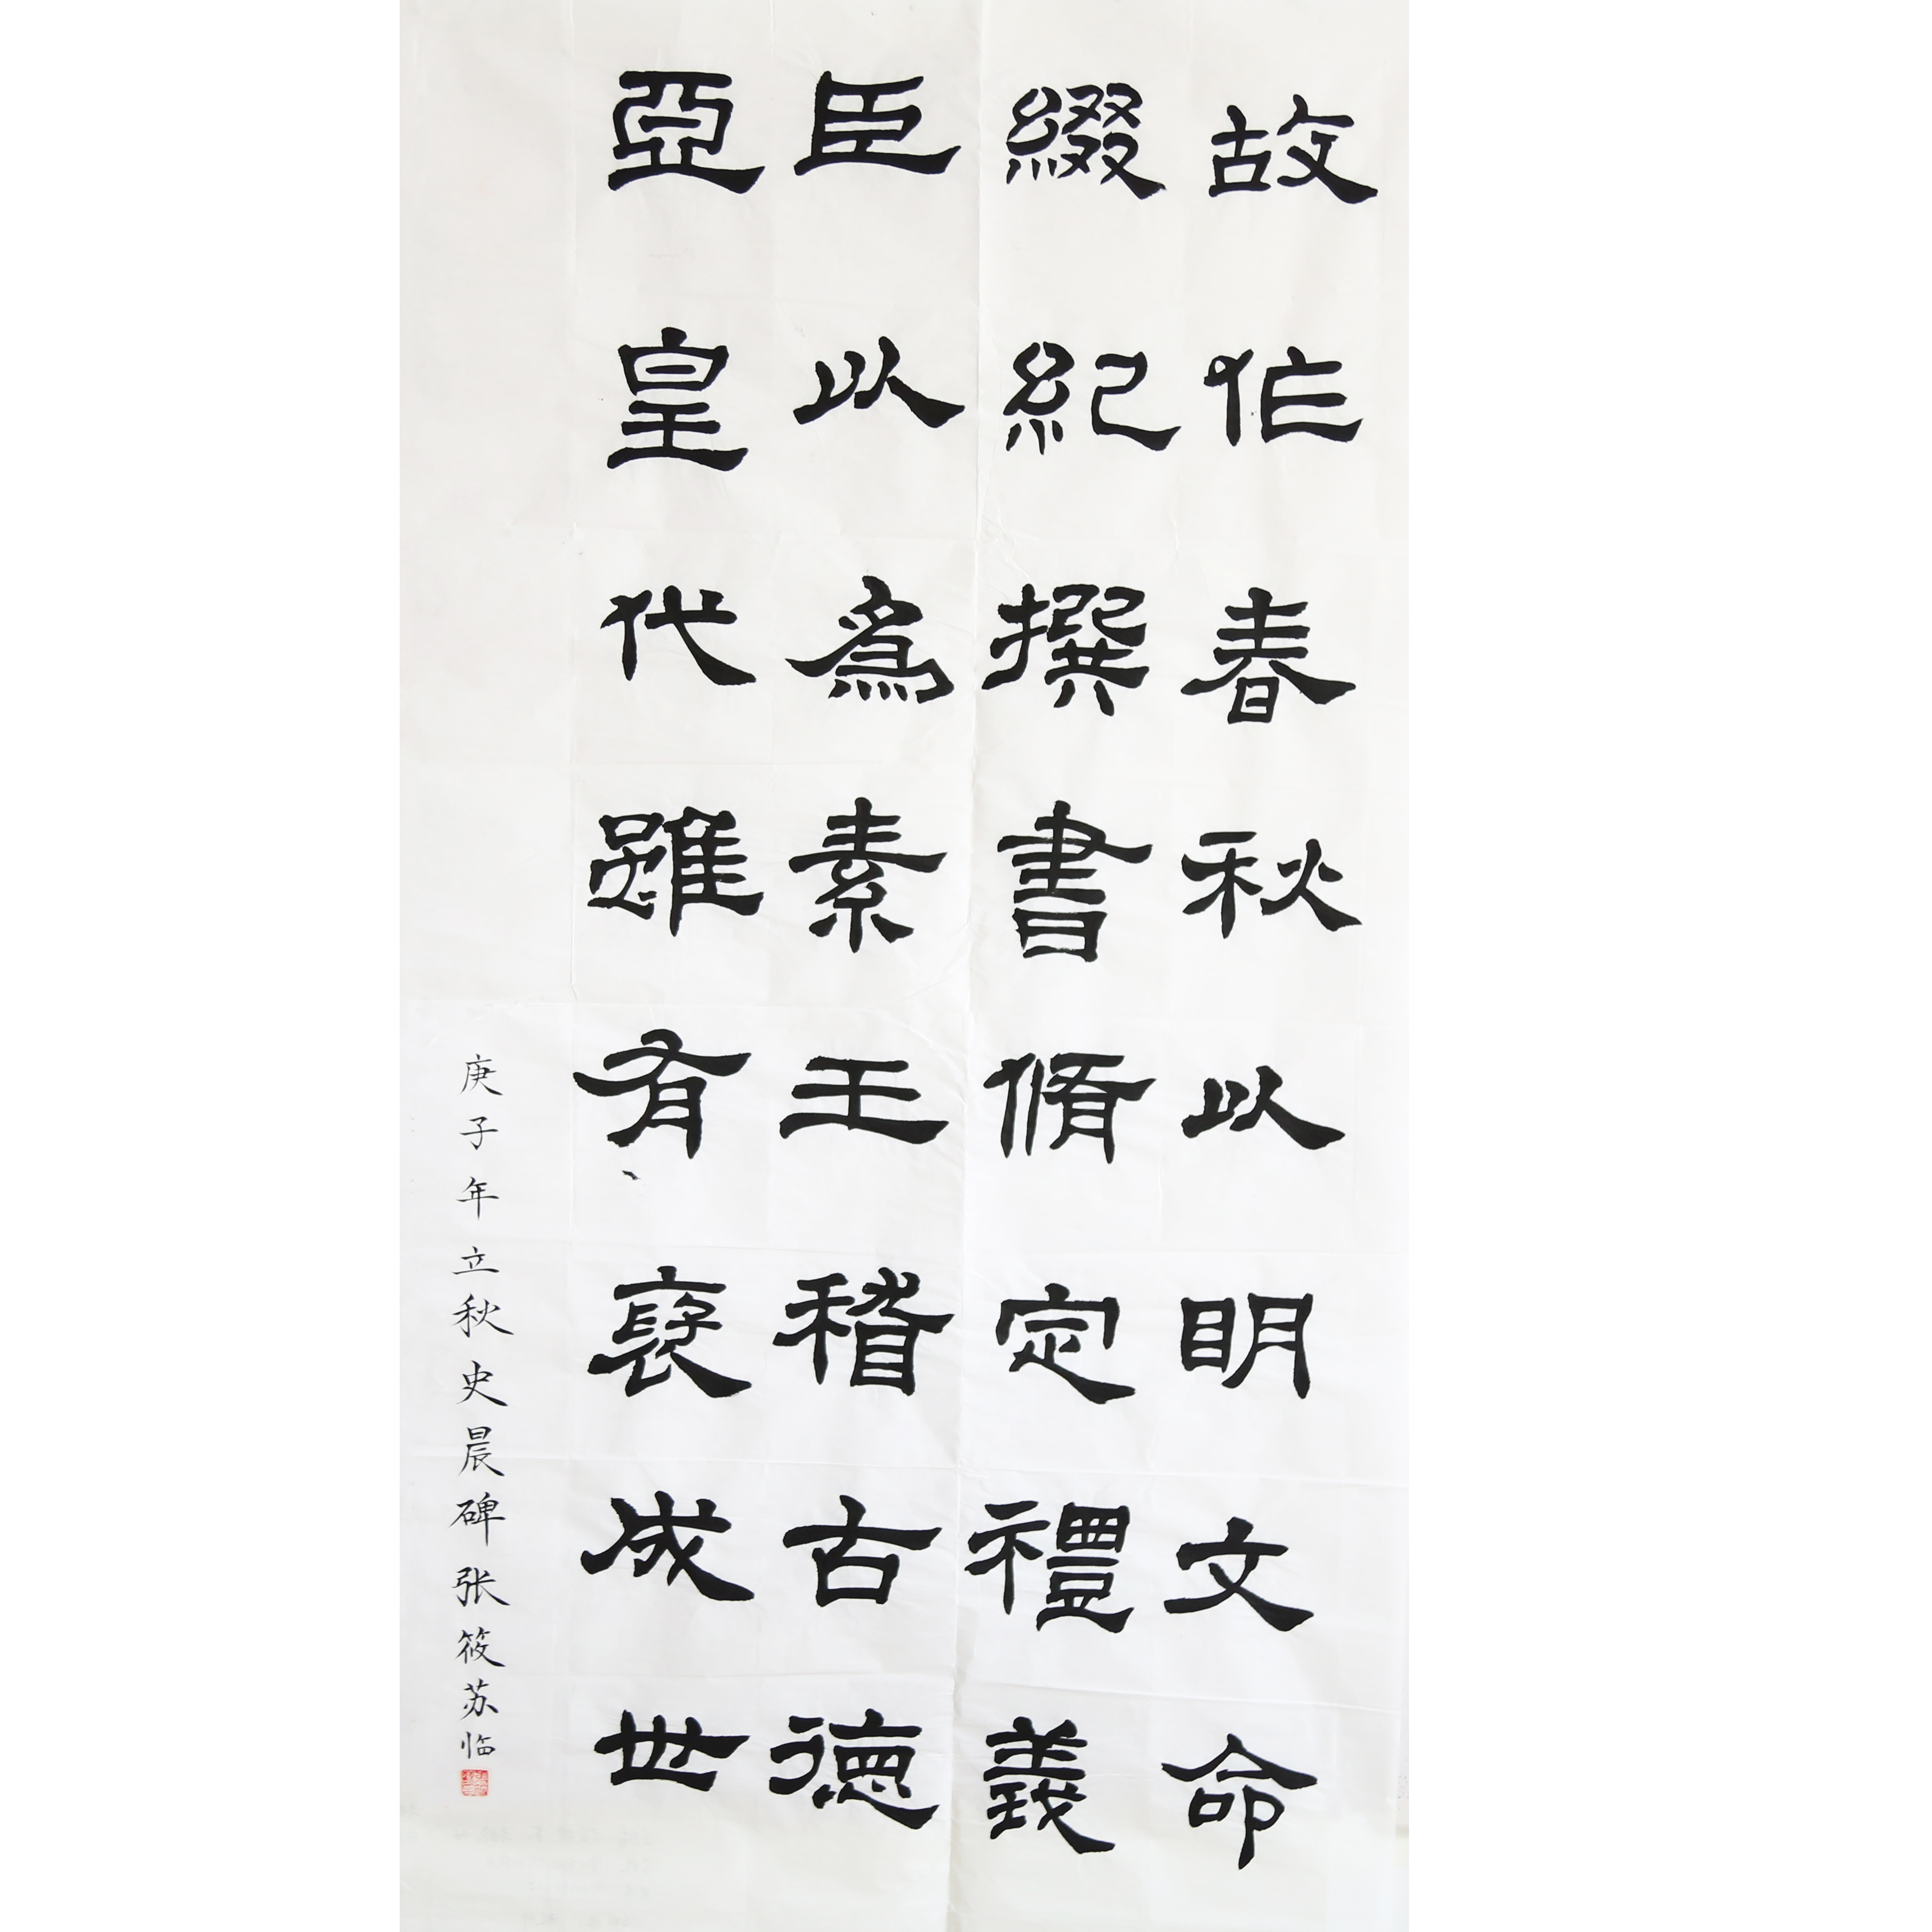 故作春秋以明文命
綴紀撰書脩定禮義
臣以為素王稽古德
亞皇代雖有褒成世
庚子年立秋史晨碑张筱苏临